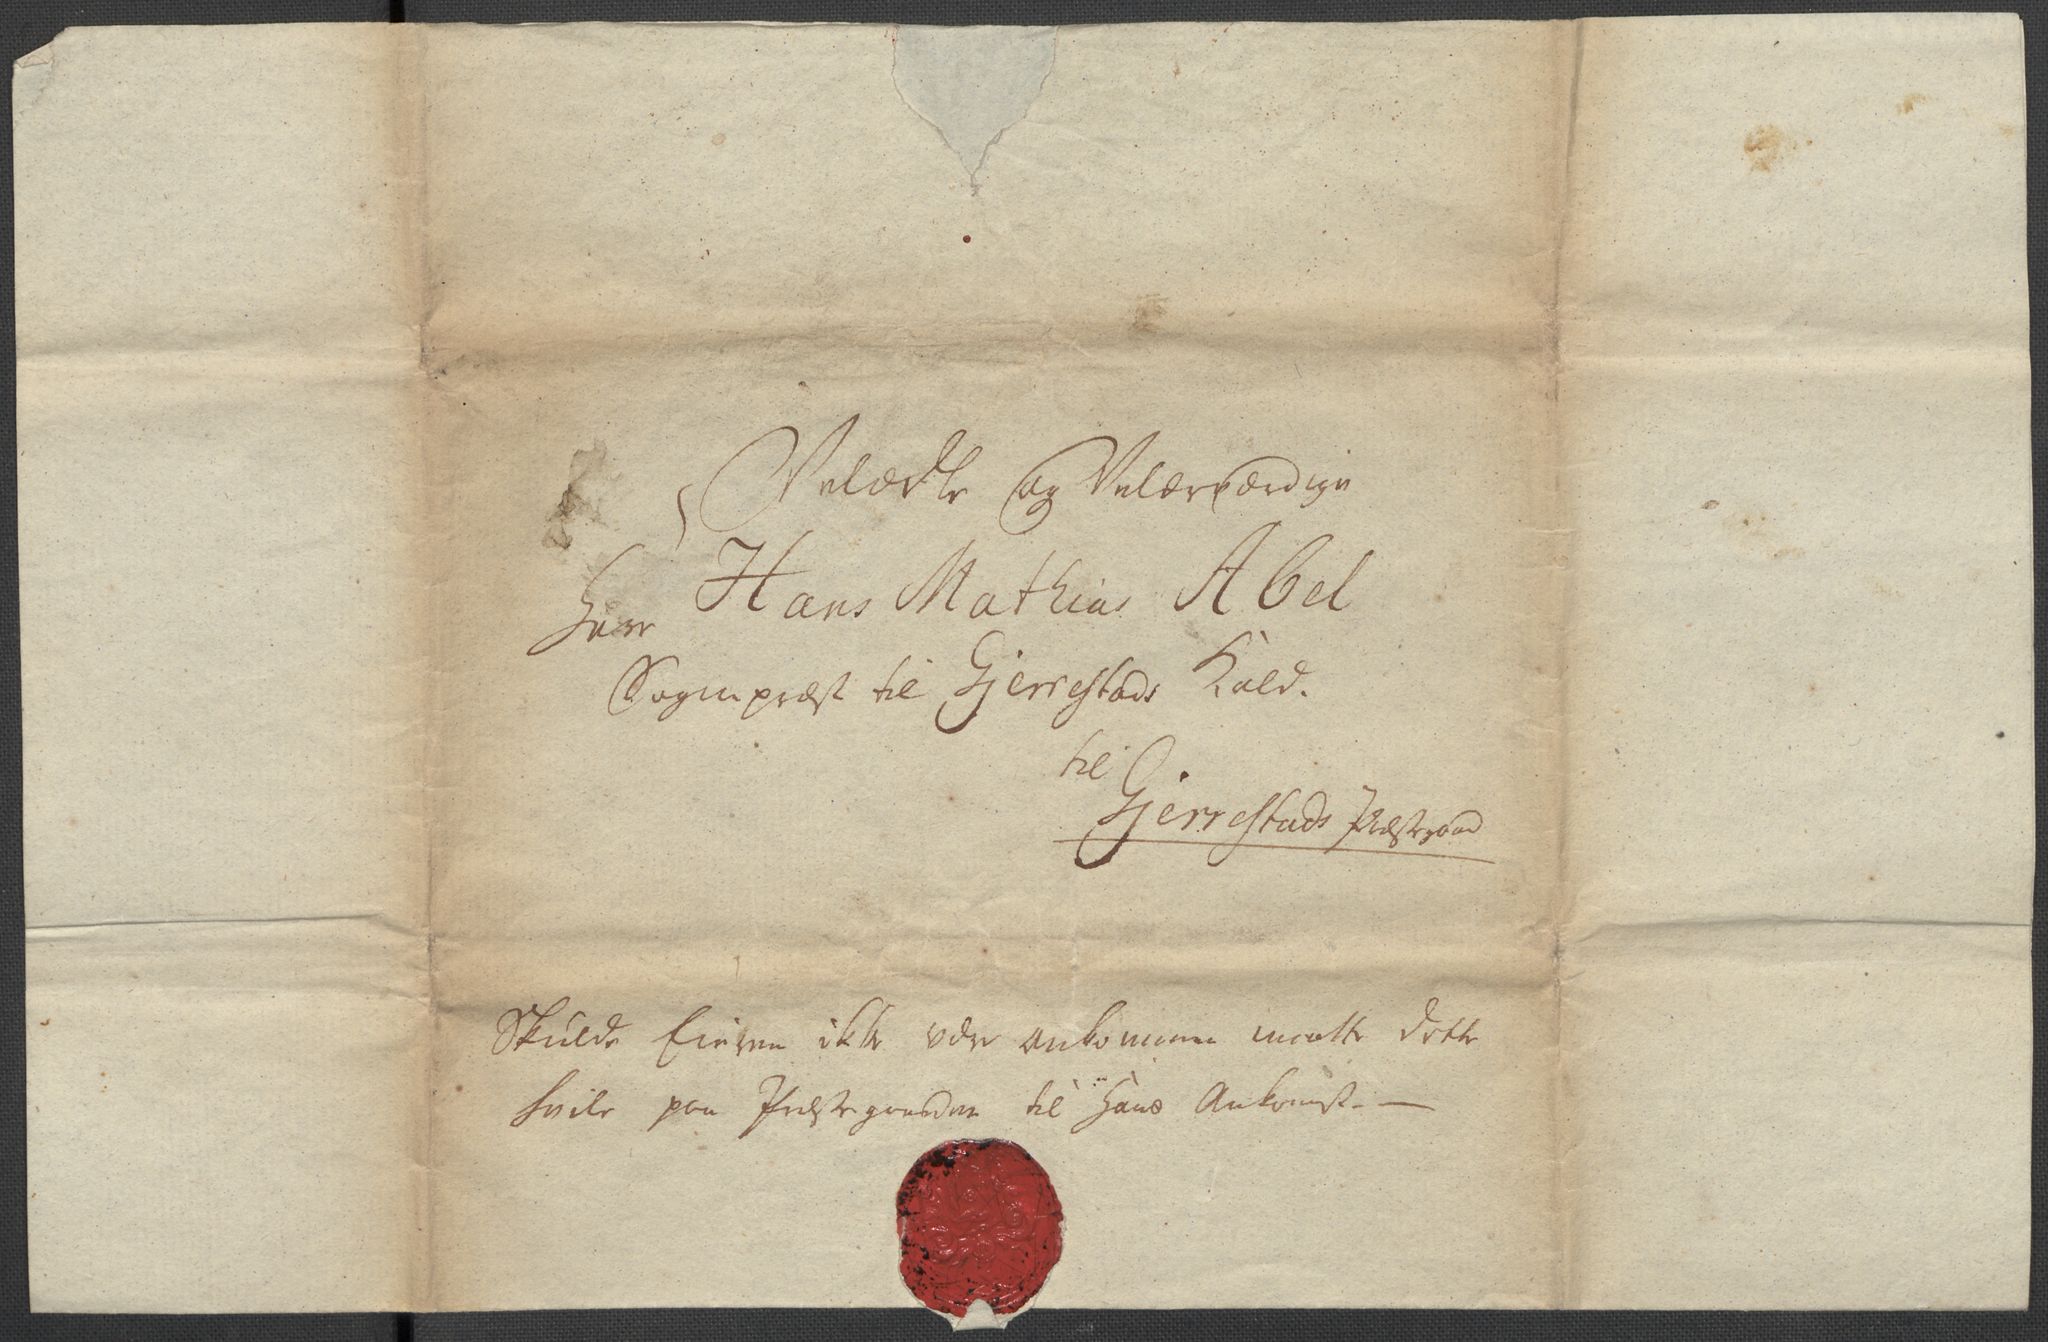 Velædle og Velærværdige
Herr Hans Mathias Abel
Sognepræst til Gjerrestads Kald.
til
Gjerrestads Præstegaard
Skulde Eieren ikke være ankommen maatte dette
hvile paa Præstegaarden til Hans Ankomst.—